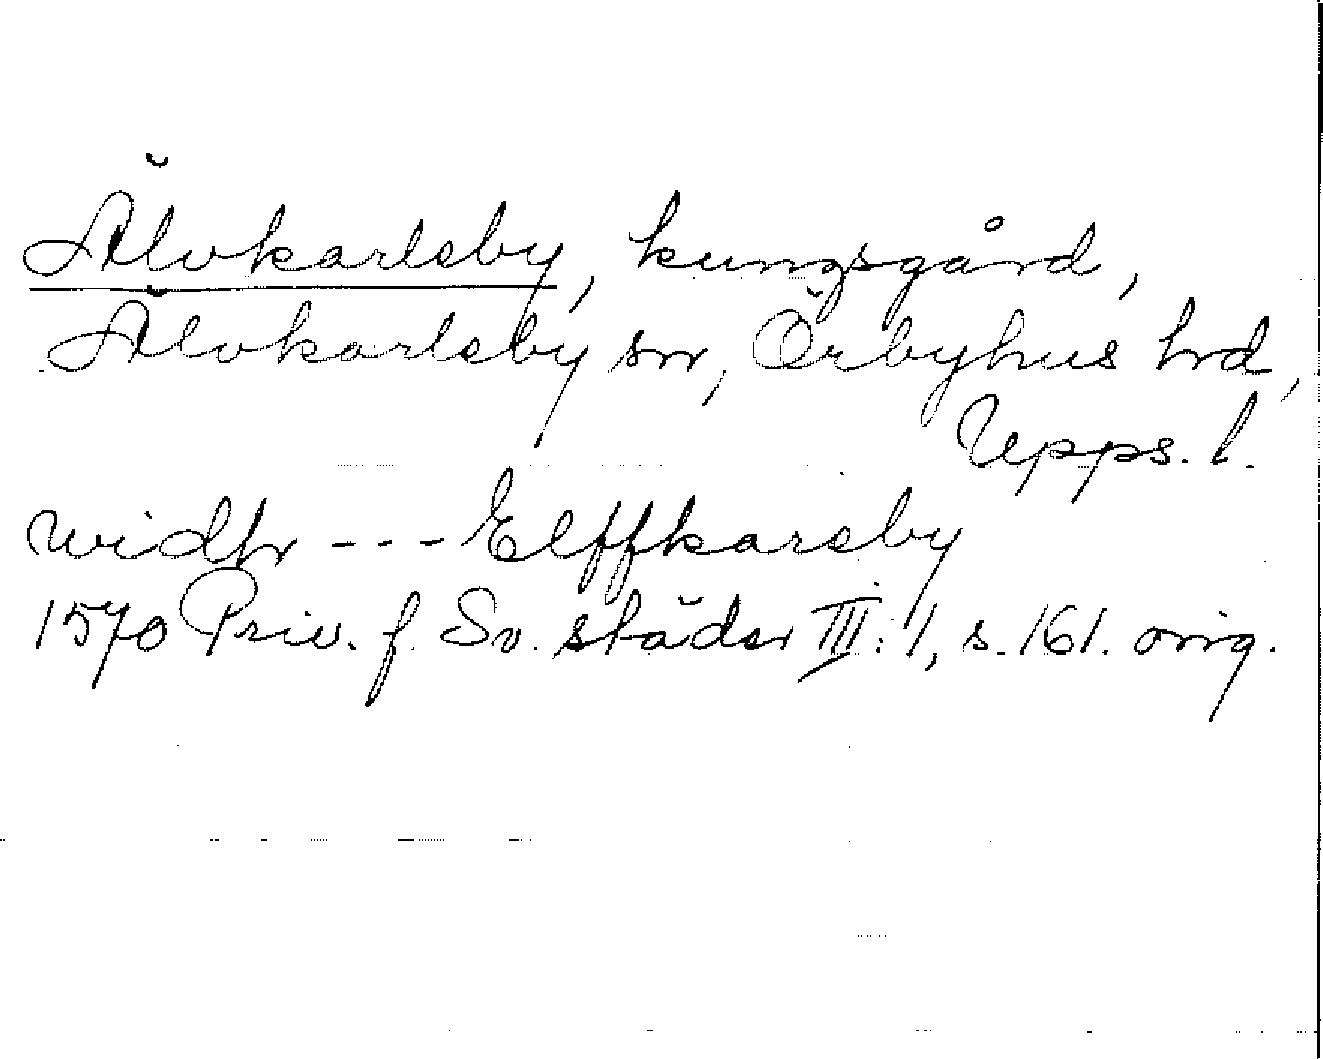 Älvkarleby, kungsgård,
Älvkarleby sn, Örbyhus hrd,
Upps. l.
widhr --- Elffkareby
1570 Priv. f. Sv. städer III: 1, s. 161. orig.